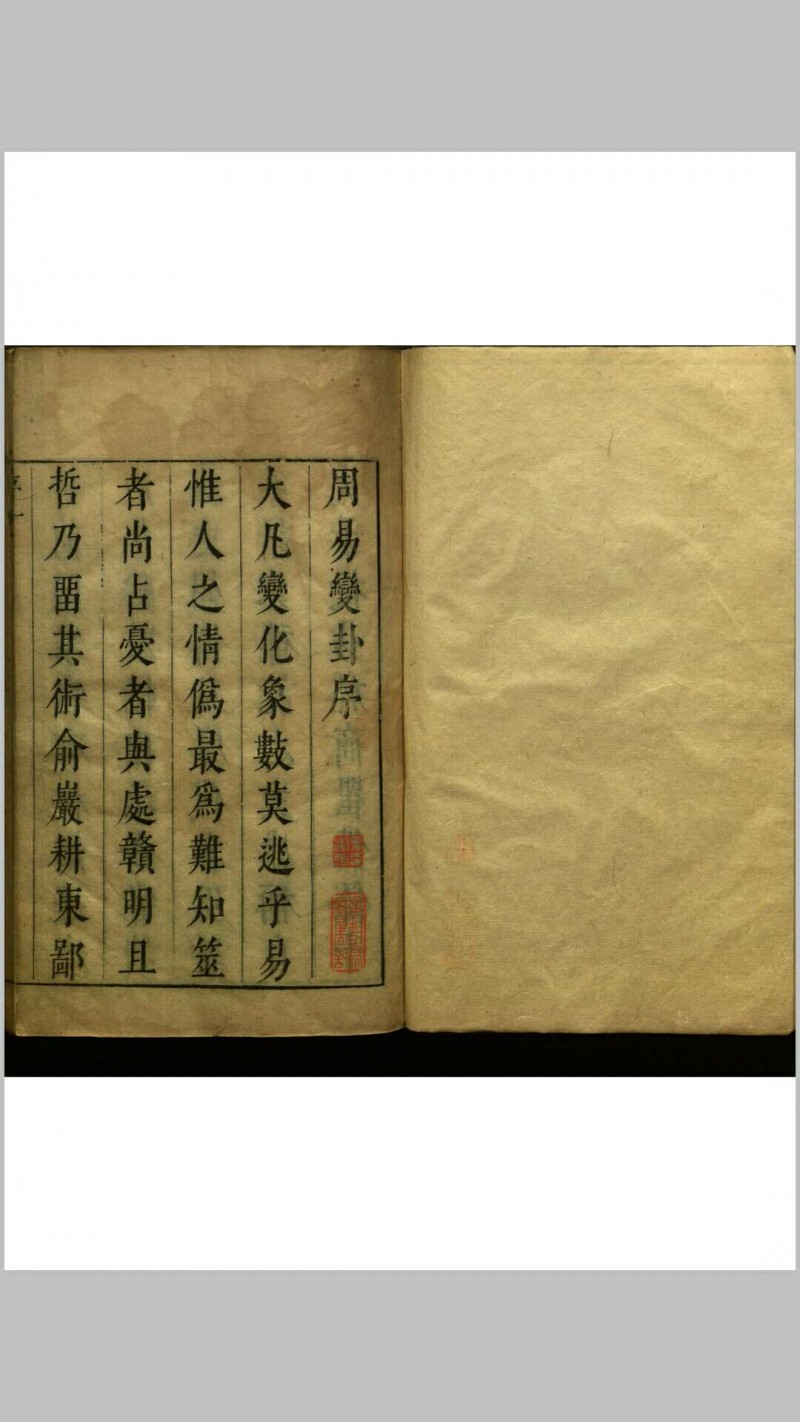 周易變卦序
大凡變化象數莫逃乎易
惟人之情僞最爲難知筮
者尚占憂者與處贛明且
哲乃畱其術俞嚴耕東鄙
序一